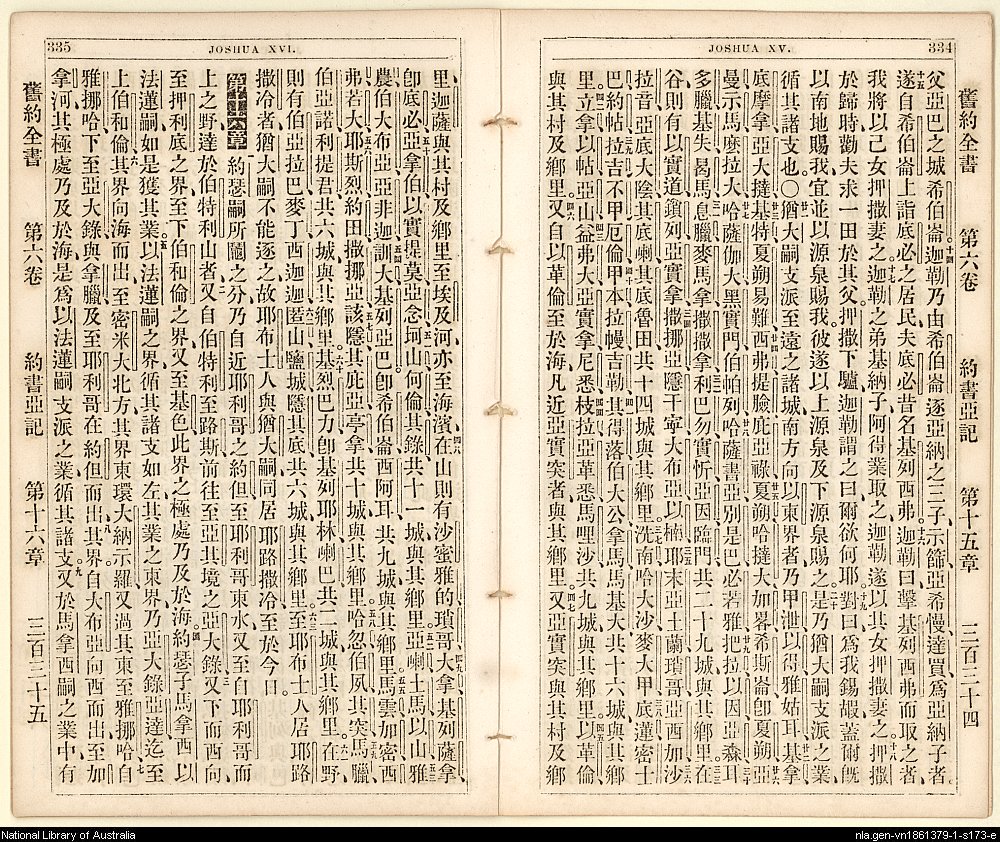 JOSHUA XV.
334
舊約全書
第六卷
約書亞記
第十五章
三百三十四
父亞巴之城希伯崙迦勒乃由希伯崙逐亞納之三子示篩亞希慢達買爲亞納子者
遂自希伯崙上詣底必之居民夫底必昔名基列西弗迦勒曰擊基列西弗而取之者
我將以己女押撒妻之迦勒之弟基納子阿得業取之迦勒遂以其女押撒妻之押撒
於歸時勸夫求一田於其父押撒下驢迦勒謂之曰爾欲何耶對曰爲我錫嘏蓋爾旣
以南地賜我宜並以源泉賜我彼遂以上源泉及下源泉賜之是乃猶大嗣支派之業
循其諸支也〇猶大嗣支派至遠之諸城南方向以東界者乃甲泄以得雅姑耳基拿
底摩拿亞大撻基特夏朔易難西弗提臉庇亞祿夏朔哈撻大加畧希斯崙卽夏朔亞
曼示馬麼拉大哈薩伽大黑實門伯帕列哈薩書亞別是巴必若雅把拉以因亞森耳
多臘基失曷馬息臘麥馬拿撒撒拿利巴勿實忻亞因臨門共二十九城與其鄉里在
谷則有以實道鎖列亞實拿撒挪亞隱干寧大布亞以楠耶末亞土蘭瑣哥亞西加沙
拉音亞底大陰其底喇其底魯田共十四城與其鄉里洗南哈大沙麥大甲底蓮密士
巴約帖拉吉不甲厄倫甲本拉幔吉勒其得落伯大公拿馬馬基大共十六城與其鄉
里立拿以帖亞山益弗大亞實拿尼悉枝拉亞革悉馬哩沙共九城與其鄉里以革倫
與其村及鄉里又自以革倫至於海凡近亞實突者與其鄉里又亞實突與其村及鄉
JOSHUA XVI.
335
里迦薩與其村及鄉里至埃及河亦至海濱在山則有沙蜜雅的瑣哥大拿基列薩拿
卽底必亞拿伯以實提莫亞念坷山何倫其錄共十一城與其鄉里亞喇土馬以山雅
農伯大布亞亞非迦訓大基列亞巴卽希伯崙西阿耳共九城與其鄉里馬雲加密西
弗若大耶斯烈約田撒挪亞該隱其庇亞亭拿共十城與其鄉里哈忽伯夙其突馬臘
伯亞諾利提君共六城與其鄉里基烈巴力卽基列耶林喇巴共二城與其鄉里在野
則有伯亞拉巴麥丁西迦迦匿山鹽城隱其底共六城與其鄉里至耶布士人居耶路
撒冷者猶大嗣不能逐之故耶布士人與猶大嗣同居耶路撒冷至於今日
第十六章 約瑟嗣所鬮之分乃自近耶利哥之約但至耶利哥東水又至自耶利哥而
上之野達於伯特利山者又自伯特利至路斯前往至亞其境之亞大錄又下而西向
至押利底之界至下伯和倫之界又至基色此界之極處乃及於海約瑟子馬拿西以
法蓮嗣如是獲其業以法蓮嗣之界循其諸支如左其業之東界乃亞大錄亞達迄至
上伯和倫其界向海而出至密米大北方其界東環大納示羅又過其東至雅挪哈自
雅挪哈下至亞大錄與拿臘及至耶利哥在約但而出其界自大布亞向西而出至加
拿河其極處乃及於海是爲以法蓮嗣支派之業循其諸支又於馬拿西嗣之業中有
舊約全書
第六卷
約書亞記
第十六章
三百三十五
National Library of Australia
nla.gen-vn1861379-1-s173-e